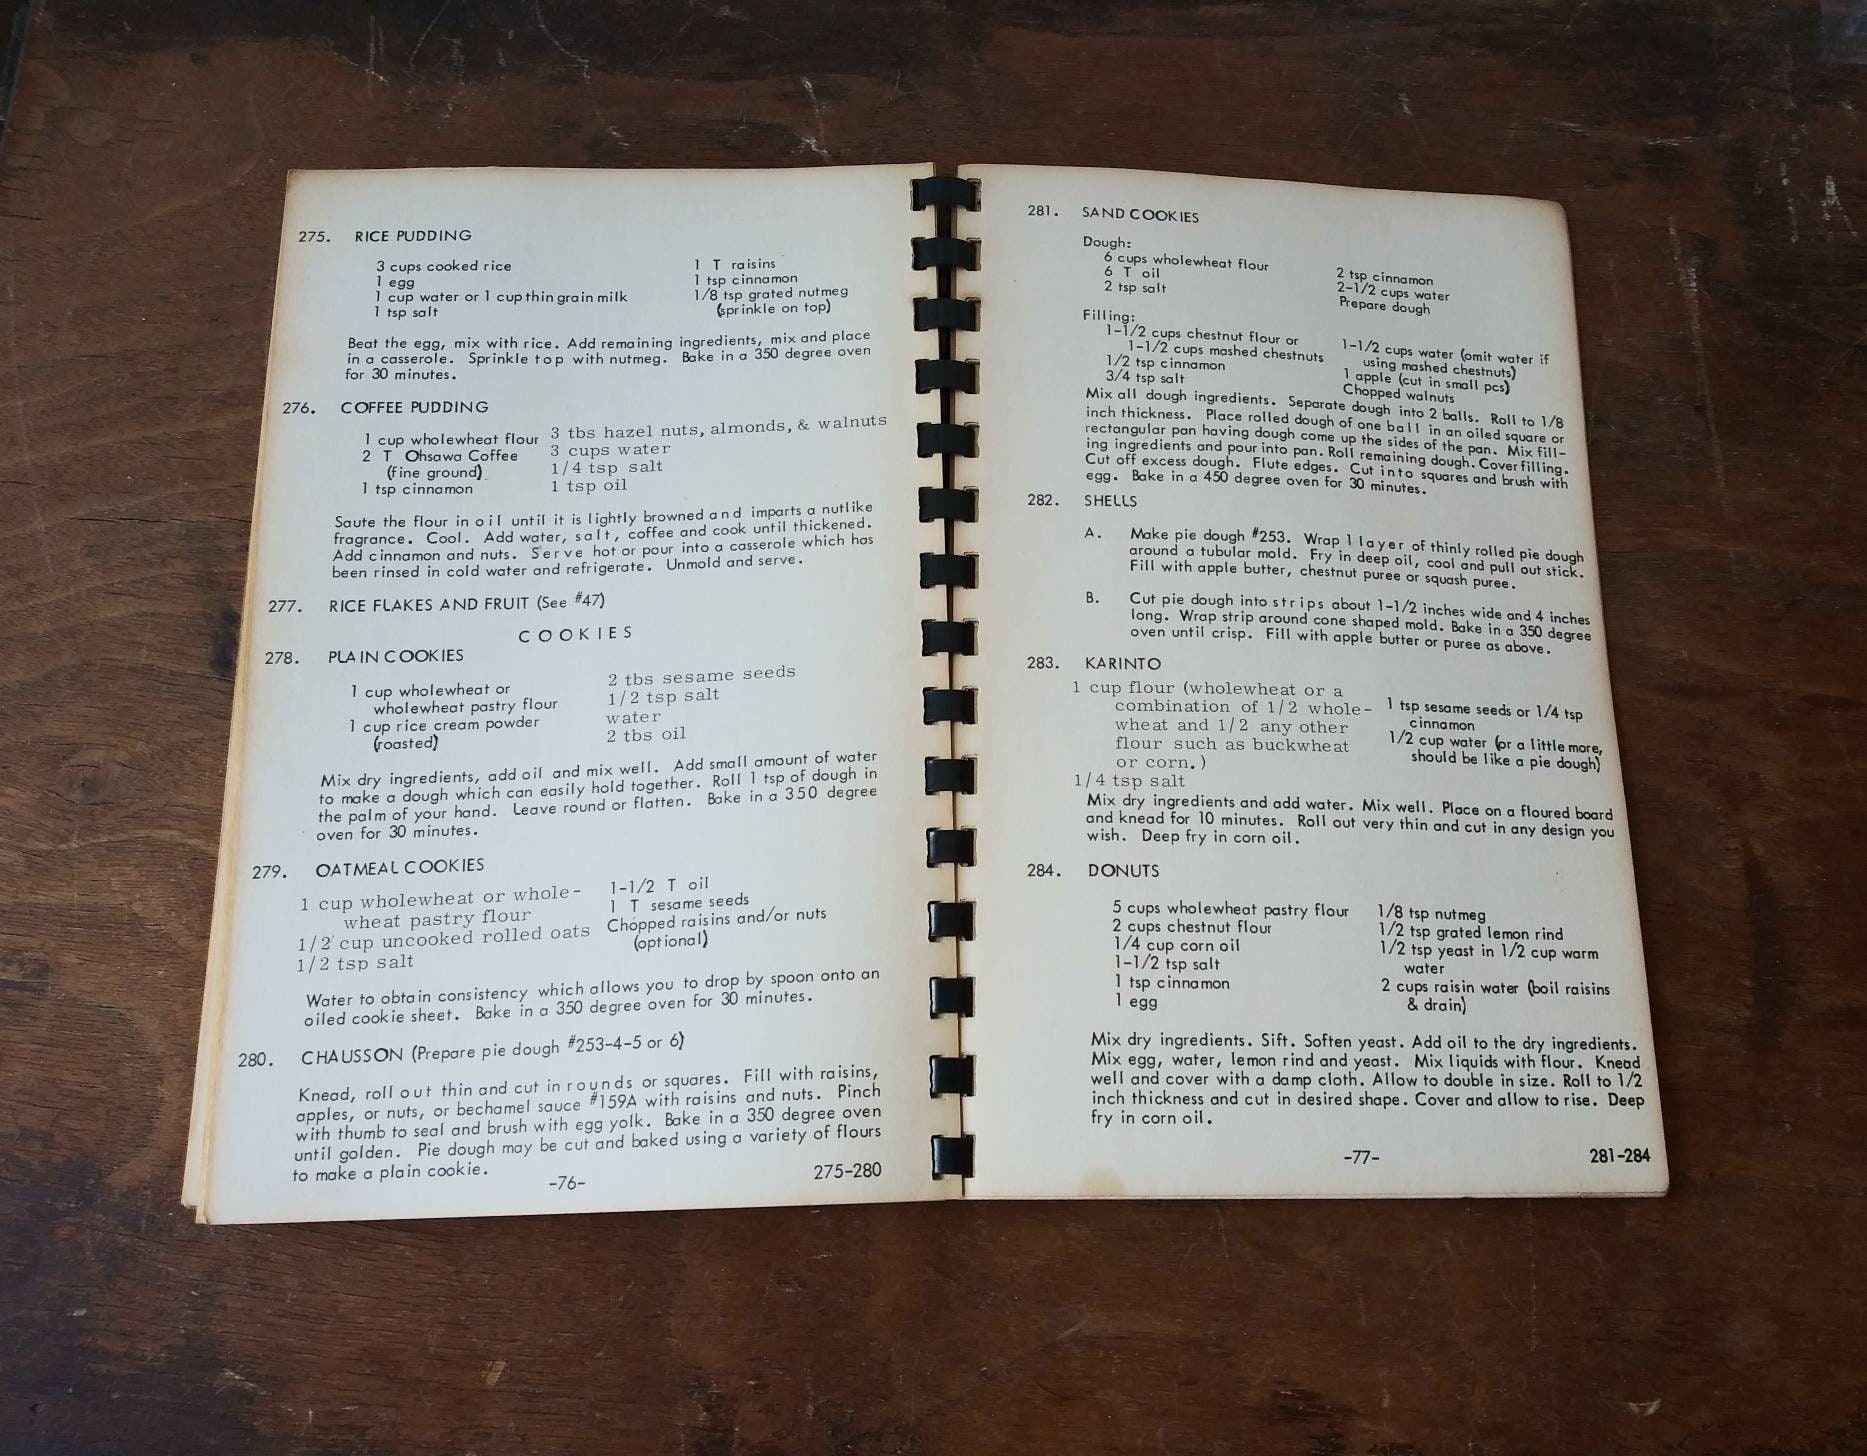 275. RICE PUDDING
3 cups cooked rice
1 egg
1 cup water or 1 cup thin grain milk
1 tsp salt
1 T raisins
1 tsp cinnamon
1/8 tsp grated nutmeg
(sprinkle on top)
Beat the egg, mix with rice. Add remaining ingredients, mix and place
in a casserole. Sprinkle top with nutmeg. Bake in a 350 degree oven
for 30 minutes.
276. COFFEE PUDDING
1 cup wholewheat flour
2 T Ohsawa Coffee
(fine ground)
1 tsp cinnamon
3 tbs hazel nuts, almonds, & walnuts
3 cups water
1/4 tsp salt
1 tsp oil
Saute the flour in oil until it is lightly browned and imparts a nutlike
fragrance. Cool. Add water, salt, coffee and cook until thickened.
Add cinnamon and nuts. Serve hot or pour into a casserole which has
been rinsed in cold water and refrigerate. Unmold and serve.
277. RICE FLAKES AND FRUIT (See #47)
COOKIES
278. PLAIN COOKIES
1 cup wholewheat or
wholewheat pastry flour
1 cup rice cream powder
(roasted)
2 tbs sesame seeds
1/2 tsp salt
water
2 tbs oil
Mix dry ingredients, add oil and mix well. Add small amount of water
to make a dough which can easily hold together. Roll 1 tsp of dough in
the palm of your hand. Leave round or flatten. Bake in a 350 degree
oven for 30 minutes.
279. OATMEAL COOKIES
1 cup wholewheat or whole-
wheat pastry flour
1/2 cup uncooked rolled oats
1/2 tsp salt
1-1/2 T oil
1 T sesame seeds
Chopped raisins and/or nuts
(optional)
Water to obtain consistency which allows you to drop by spoon onto an
oiled cookie sheet. Bake in a 350 degree oven for 30 minutes.
280. CHAUSSON (Prepare pie dough #253-4-5 or 6)
Knead, roll out thin and cut in rounds or squares. Fill with raisins,
apples, or nuts, or bechamel sauce #159A with raisins and nuts. Pinch
with thumb to seal and brush with egg yolk. Bake in a 350 degree oven
until golden. Pie dough may be cut and baked using a variety of flours
to make a plain cookie.
-76-
275-280
281. SAND COOKIES
Dough:
6 cups wholewheat flour
6 T oil
2 tsp salt
2 tsp cinnamon
2-1/2 cups water
Prepare dough
Filling:
1-1/2 cups chestnut flour or
1-1/2 cups mashed chestnuts
1/2 tsp cinnamon
3/4 tsp salt
1-1/2 cups water (omit water if
using mashed chestnuts)
1 apple (cut in small pcs)
Chopped walnuts
Mix all dough ingredients. Separate dough into 2 balls. Roll to 1/8
inch thickness. Place rolled dough of one ball in an oiled square or
rectangular pan having dough come up the sides of the pan. Mix fill-
ing ingredients and pour into pan. Roll remaining dough. Cover filling.
Cut off excess dough. Flute edges. Cut into squares and brush with
egg. Bake in a 450 degree oven for 30 minutes.
282. SHELLS
A. Make pie dough #253. Wrap 1 layer of thinly rolled pie dough
around a tubular mold. Fry in deep oil, cool and pull out stick.
Fill with apple butter, chestnut puree or squash puree.
B. Cut pie dough into strips about 1-1/2 inches wide and 4 inches
long. Wrap strip around cone shaped mold. Bake in a 350 degree
oven until crisp. Fill with apple butter or puree as above.
283. KARINTO
1 cup flour (wholewheat or a
combination of 1/2 whole-
wheat and 1/2 any other
flour such as buckwheat
or corn.)
1/4 tsp salt
1 tsp sesame seeds or 1/4 tsp
cinnamon
1/2 cup water (or a little more,
should be like a pie dough)
Mix dry ingredients and add water. Mix well. Place on a floured board
and knead for 10 minutes. Roll out very thin and cut in any design you
wish. Deep fry in corn oil.
284. DONUTS
5 cups wholewheat pastry flour
2 cups chestnut flour
1/4 cup corn oil
1-1/2 tsp salt
1 tsp cinnamon
1 egg
1/8 tsp nutmeg
1/2 tsp grated lemon rind
1/2 tsp yeast in 1/2 cup warm
water
2 cups raisin water (boil raisins
& drain)
Mix dry ingredients. Sift. Soften yeast. Add oil to the dry ingredients.
Mix egg, water, lemon rind and yeast. Mix liquids with flour. Knead
well and cover with a damp cloth. Allow to double in size. Roll to 1/2
inch thickness and cut in desired shape. Cover and allow to rise. Deep
fry in corn oil.
-77-
281-284